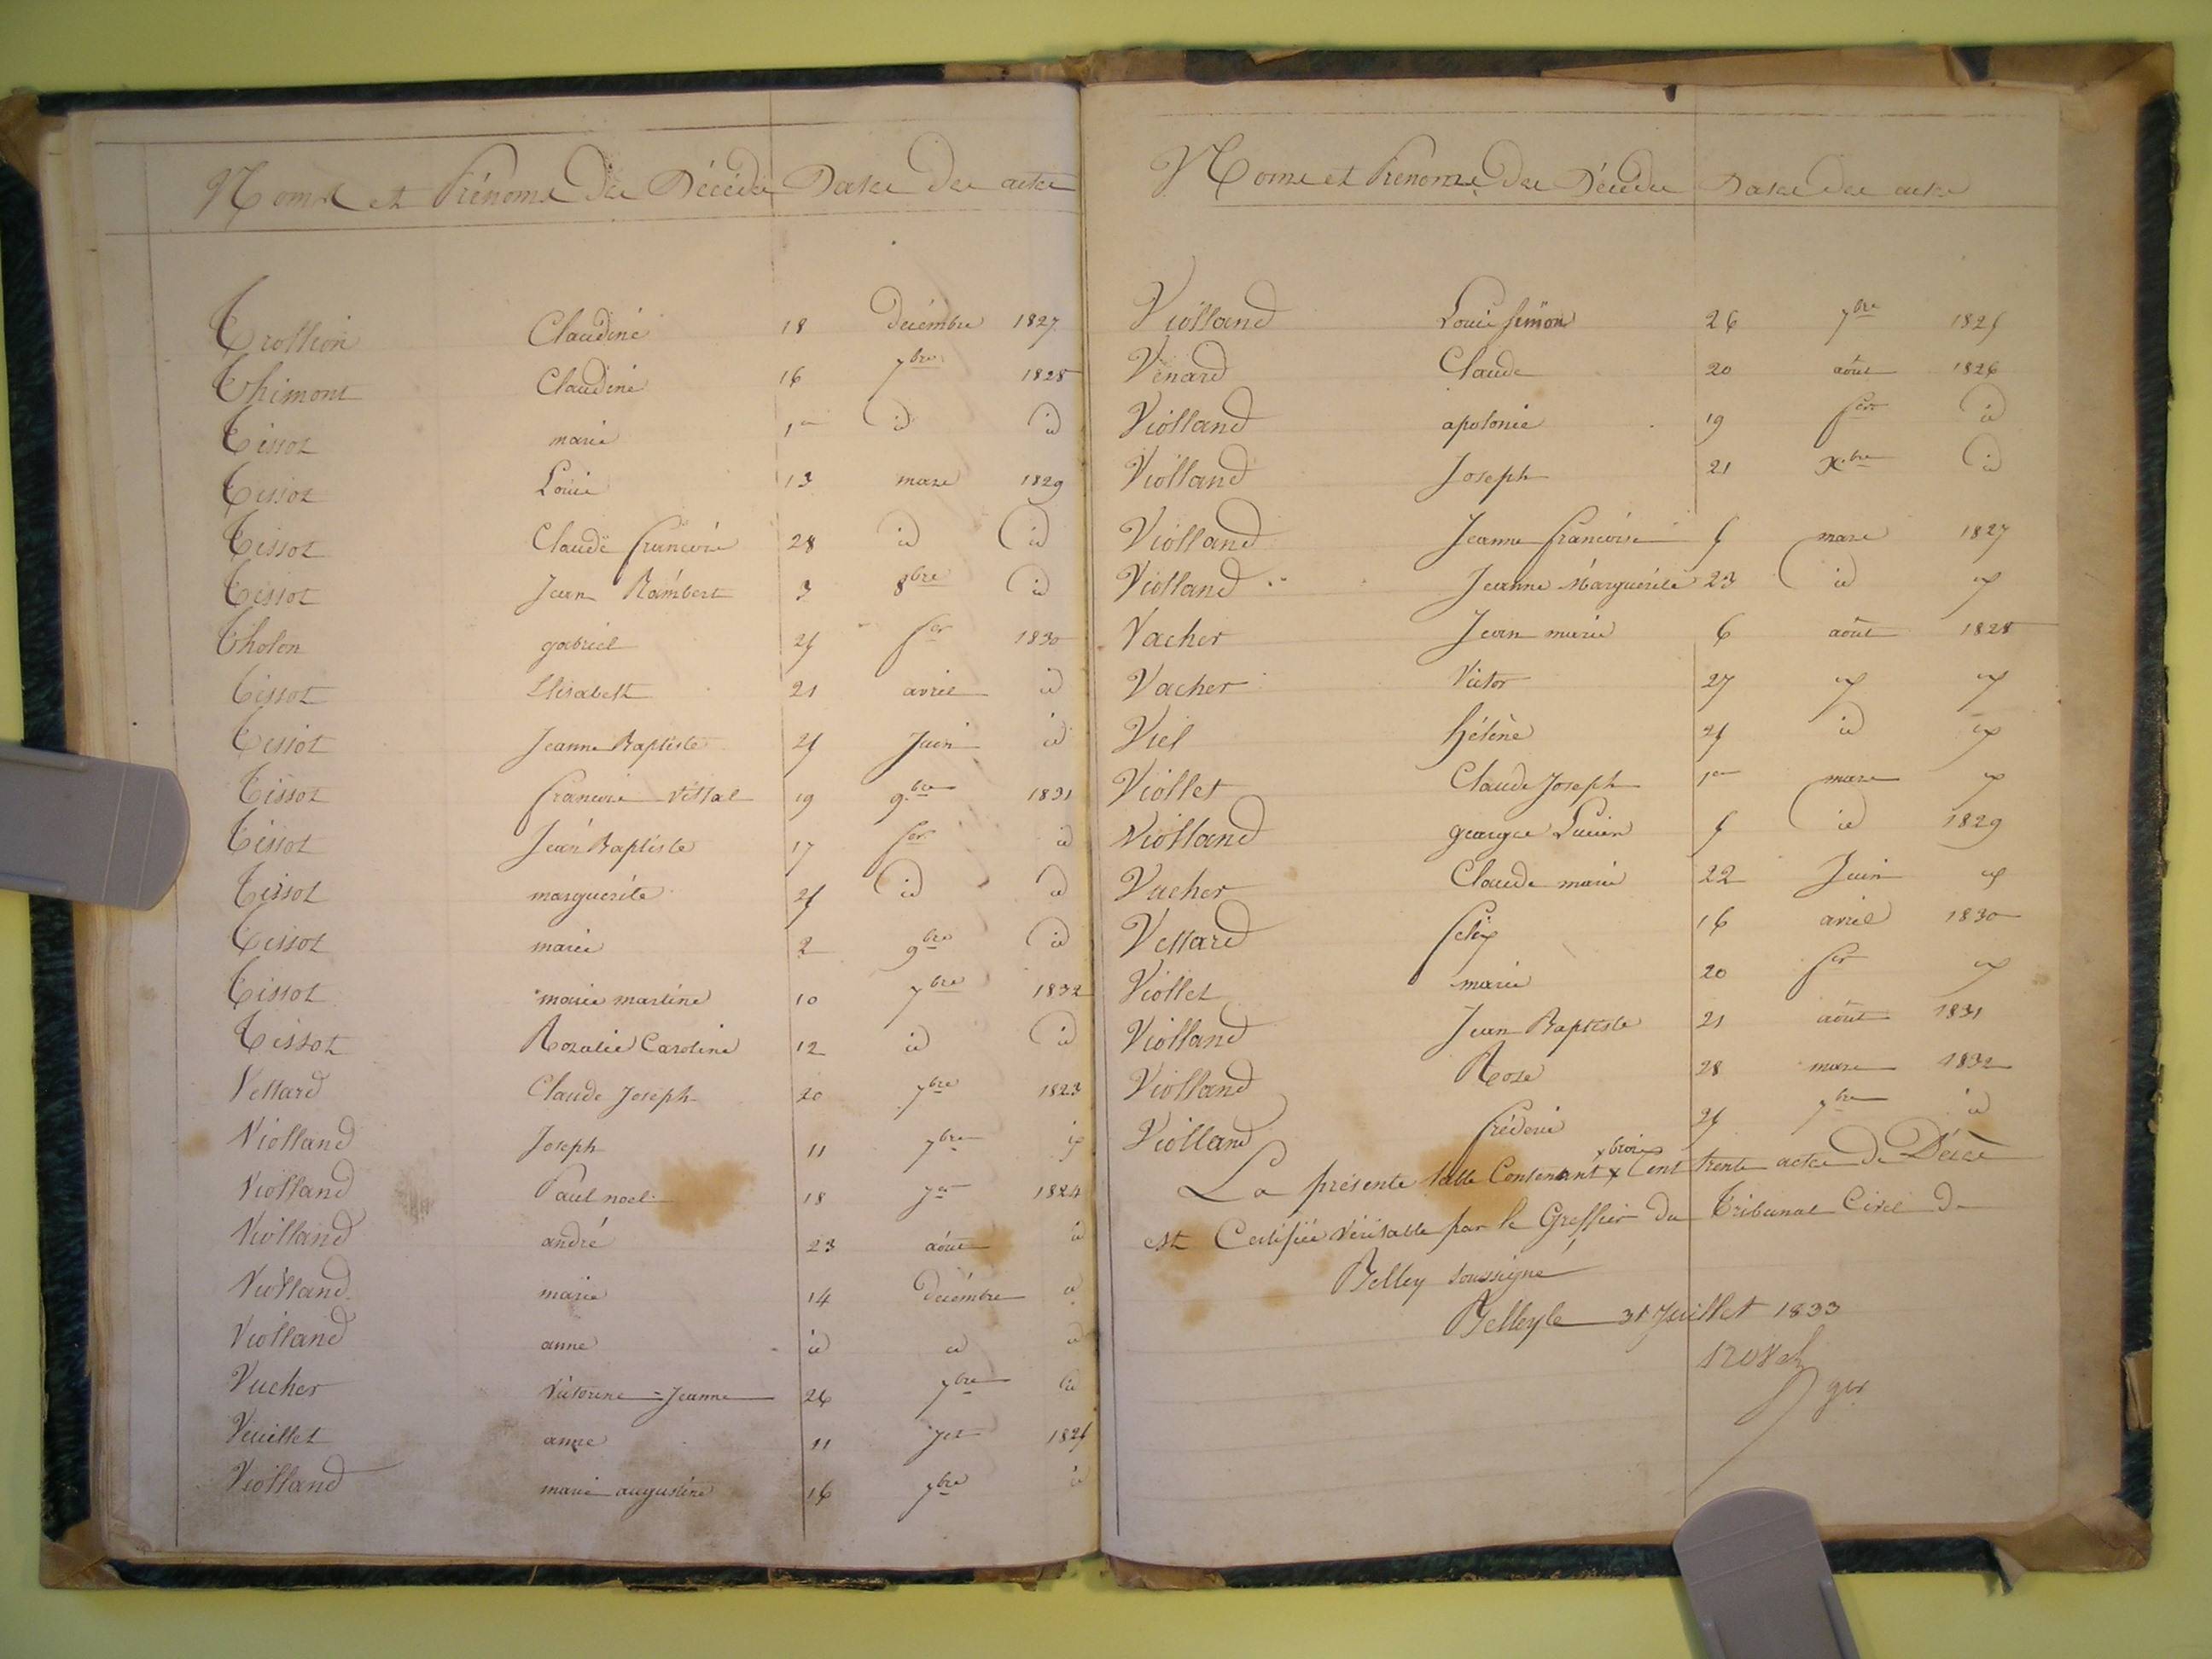 Noms et Prénoms des Décédés Dates des actes
Trollion Claudine 18 décembre 1827
Thimont Claudine 16 7bre 1828
Tissot marie 1er id id
Tissot Louis 13 mars 1829
Tissot Claude françois 28 id id
Tissot Jean Rambert 3 8bre id
Tholon gabriel 25 fer 1830
Tissot Elisabeth 21 avril id
Tissot Jeanne Baptiste 25 Juin id
Tissot françois Vital 19 9bre 1831
Tissot Jean Baptiste 17 fer id
Tissot marguerite 25 id id
Tissot marie 2 9bre id
Tissot marie martine 10 7bre 1832
Tissot Rozalie Caroline 12 id id
Vettard Claude Joseph 20 7bre 1823
Violland Joseph 11 7bre id
Violland Paul noel 18 1824
Violland andré 23 août id
Violland marie 14 décembre id
Violland anne id id id
Vucher Victorine = Jeanne 26 7bre id
Veuillet anne 11 Jet 1825
Violland marie augustine 16 7bre id
Noms et Prénoms des Décédés Dates des actes
Violland Louis simon 26 7bre 1825
Venard Claude 20 août 1826
Violland apolonie 19 fer id
Violland Joseph 21 Xbre id
Violland Jeanne françoise 5 mars 1827
Violland Jeanne Marguerite 23 id id
Vacher Jean marie 6 août 1828
Vacher Victor 27 id id
Viel hélène 25 id id
Viollet Claude Joseph 1er mars id
Violland georges Lucien 5 id 1829
Vucher Claude marie 22 Juin id
Vettard felix 16 avril 1830
Viollet marie 20 fer id
Violland Jean Baptiste 21 août 1831
Violland Rose 28 mars 1832
Violland frédéric 25 7bre id
x trois
La présente table Contenant x Cent trente actes de Décès
est Certifiée Véritable par le Greffier du Tribunal Civil de
Belley soussigné
Belley le 31 Juillet 1833
ger